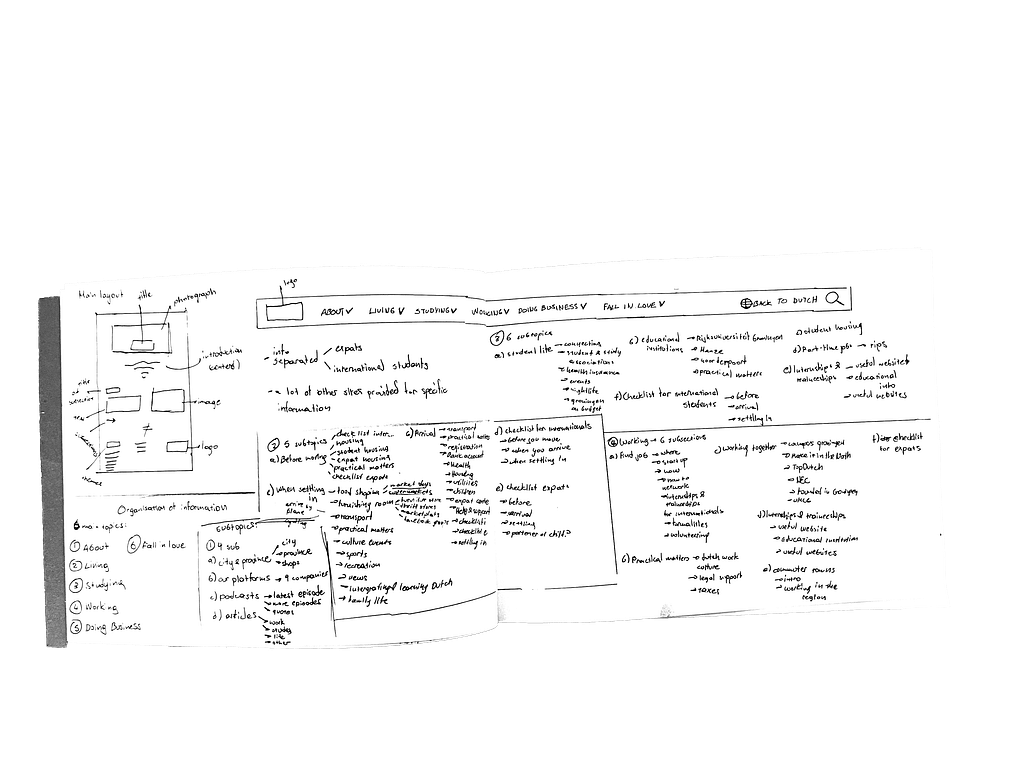 Main layout
title
photograph
introduction
(centered)
title
of
image
logo
themes
Organisation of information
6 main topics:
① About
② Living
③ Studying
④ Working
⑤ Doing Business
⑥ Fall in love
subtopics:
① 4 sub
a) city & province
city
→ province
shops
b) our platforms → 9 companies
c) podcasts → latest episode
→ more episodes
→ quotes
d) articles
work
studies
→ life
→ other
logo
ABOUT ∨ LIVING ∨ STUDYING ∨ WORKING ∨ DOING BUSINESS ∨ FALL IN LOVE ∨ BACK TO DUTCH
- info
separated
expats
international students
- a lot of other sites provided for specific
information
② 5 subtopics
a) Before moving
check list inter...
housing
student housing
expat housing
practical matters
checklist expats
b) Arrival
→ transport
→ practical
registration
→ Bank account
→ Health
→ Housing
→ utilities
→ children
→ expat
Help & support
→ checklist i
→ checklist e
→ settling in
c) When settling
in
→ food shopping
→ market days
→ furnishing room
thrift stores
marketplace
→ transport
→ practical matters
→ culture events
→ sports
→ recreation
→ news
→ intergrating & learning Dutch
→ family life
d) checklist for internationals
→ before you move
→ when you arrive
→ when settling in
e) checklist expats
→ before
→ arrival
→ settling
→ partner & child?
③ 6 subtopics
a) student life → connecting
→ student & study
associations
→ health insurance
→ events
→ nightlife
→ groningen
on budget
b) educational
institutions
→ Rijksuniversiteit Groningen
→ Hanze
→ noorderpoort
→ practical matters
c) student housing
d) Part-time jobs → tips
e) Internships &
traineeships
→ useful websites
→ educational
info
→ useful websites
f) Checklist for international
students
→ before
→ arrival
→ settling in
④ Working → 6 subsections
a) find job → where
→ startup
→ how
→ how to
network
→ internships &
traineeships
for internationals
→ formalities
→ volunteering
b) Practical matters → dutch work
culture
→ legal support
→ taxes
c) working together
→ campus groningen
→ Make it in the North
→ TopDutch
→ founded in Groningen
d) Internships & traineeships
→ useful website
→ educational institution
→ useful websites
e) commuter towns
→ intro
→ working in the
region
f) checklist
for expats